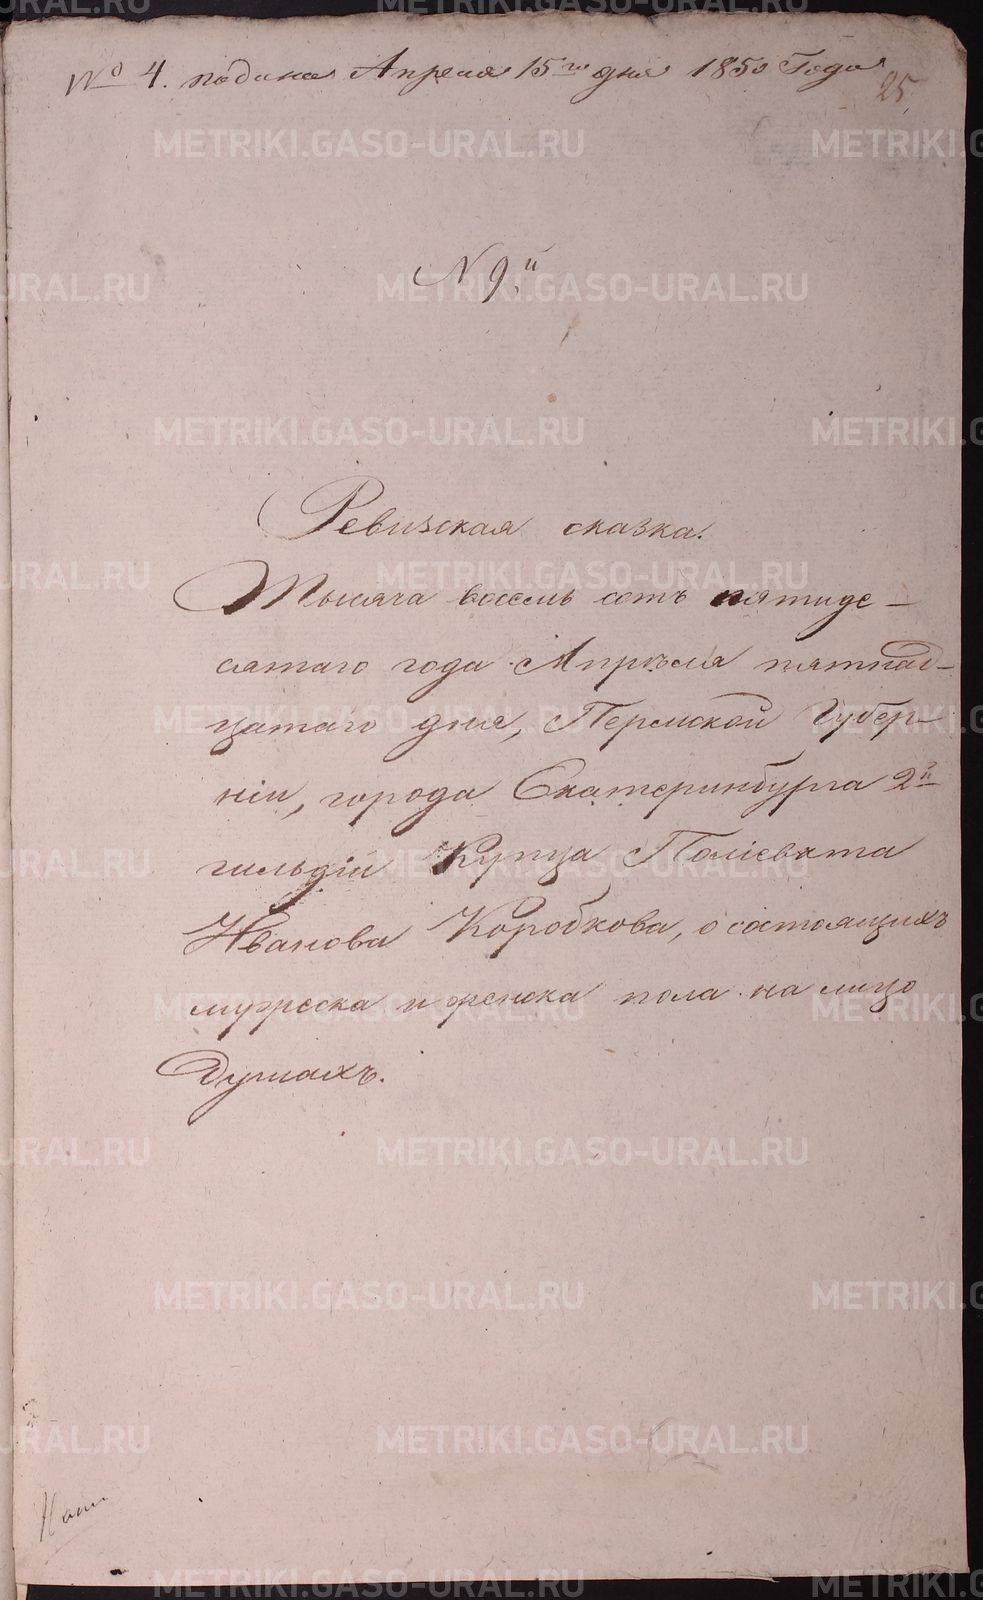 № 4. подана Апреля 15го дня 1850 Года
25
N 9.й
Ревизская сказка.
Тысяча восемь сотъ пятиде-
сятаго года Апрѣля пятнад-
цатаго дня, Пермской Губер-
ніи, города Екатеринбурга 2й
гильдіи Купца Поліевкта
Иванова Коробкова, о состоящихъ
мужеска и женска пола на лицо
душахъ.
METRIKI.GASO-URAL.RU